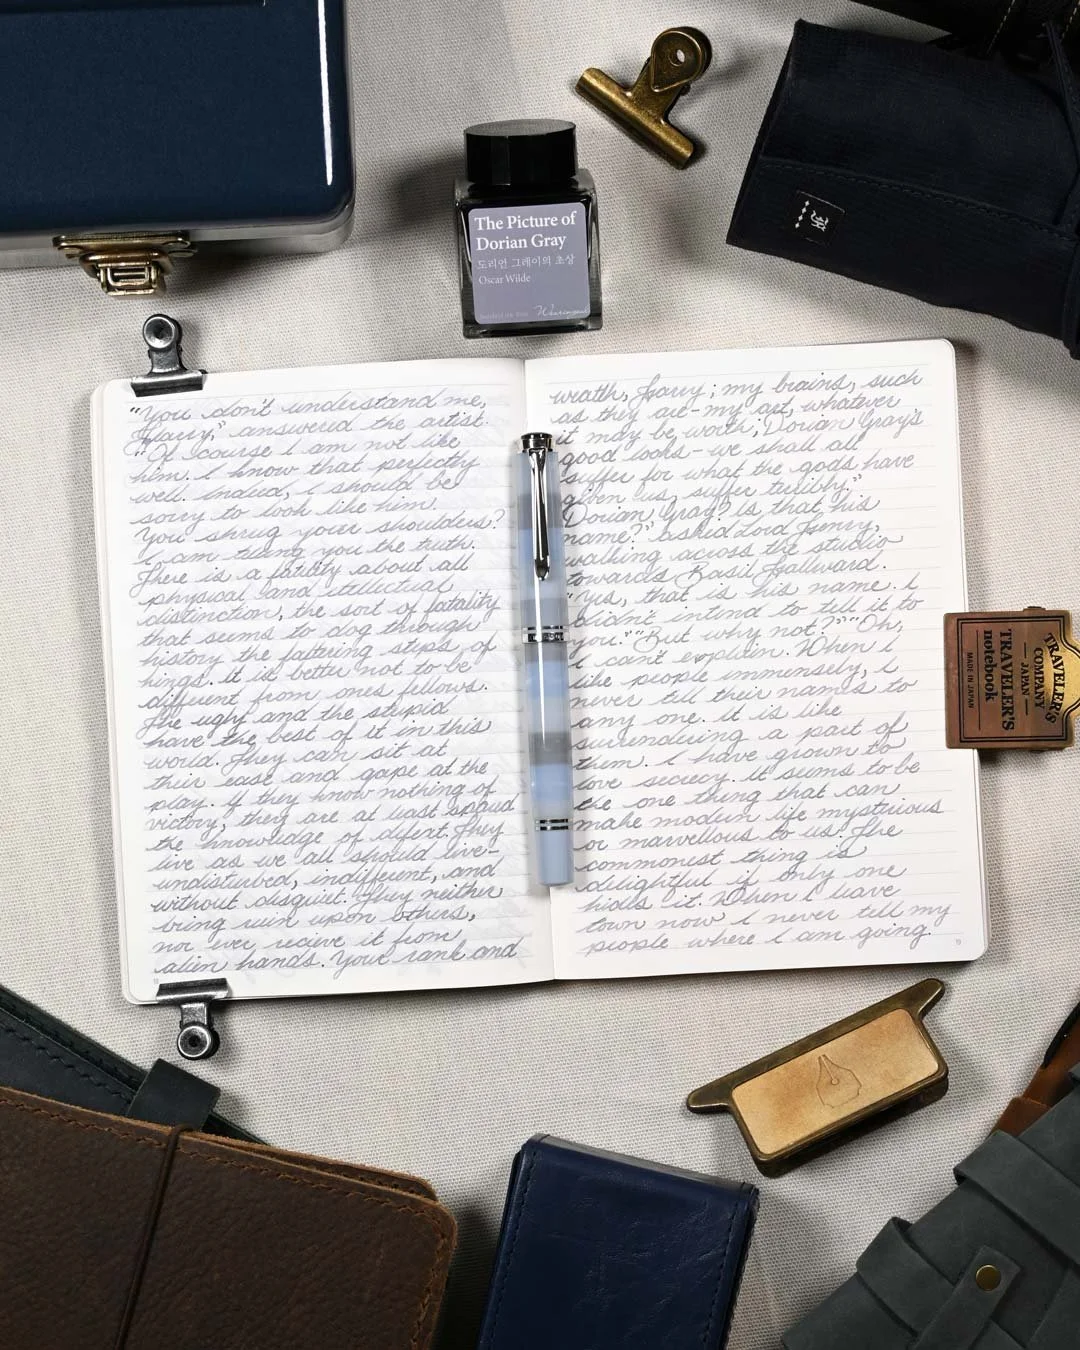 The Picture of
Dorian Gray
도리언 그레이의 초상
Oscar Wilde
Wearingeul
"You don't understand me,
Harry," answered the artist.
"Of course I am not like
him. I know that perfectly
well. Indeed, I should be
sorry to look like him.
You shrug your shoulders?
I am telling you the truth.
There is a fatality about all
physical and intellectual
distinction, the sort of fatality
that seems to dog through
history the faltering steps of
kings. It is better not to be
different from ones fellows.
The ugly and the stupid
have the best of it in this
world. They can sit at
their ease and gape at the
play. If they know nothing of
victory, they are at least spared
the knowledge of defeat. They
live as we all should live—
undisturbed, indifferent, and
without disquiet. They neither
bring ruin upon others,
nor ever recieve it from
alien hands. Your rank and
wealth, Harry; my brains, such
as they are—my art, whatever
it may be worth; Dorian Gray's
good looks—we shall all
suffer for what the gods have
given us, suffer terribly."
Dorian Gray? Is that his
name?" asked Lord Henry,
walking across the studio
towards Basil Hallward.
"Yes, that is his name. I
didn't intend to tell it to
you." "But why not?" "Oh,
I can't explain. When I
like people immensely, I
never tell their names to
any one. It is like
surrendering a part of
them. I have grown to
love secrecy. It seems to be
the one thing that can
make modern life mysterious
or marvellous to us. The
commonest thing is
delightful if only one
hides it. When I leave
town now I never tell my
people where I am going.
19
TRAVELER'S
COMPANY
JAPAN
TRAVELER'S
notebook
MADE IN JAPAN